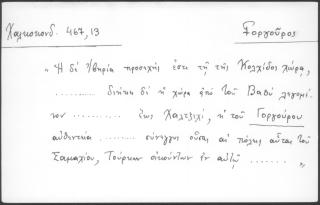 Χαλκοκονδ. 467,13 Γοργοῦρος
"Ἡ δὲ Ἰβηρία προσεχής ἐστι τῇ τῆς Κολχίδος χώρᾳ,
.......... διήκει δὲ ἡ χώρα ἀπὸ τοῦ Βαθὺ λεγομέ
νου .......... ἕως Χαλτζιχί, ἡ τοῦ Γοργούρου
αὐθεντεία ........ σύνεγγυς οὖσαι αἱ πόλεις αὗται τοῦ
Σαμαχίου, Τούρκων οἰκούντων ἐν αὐτῷ ........"